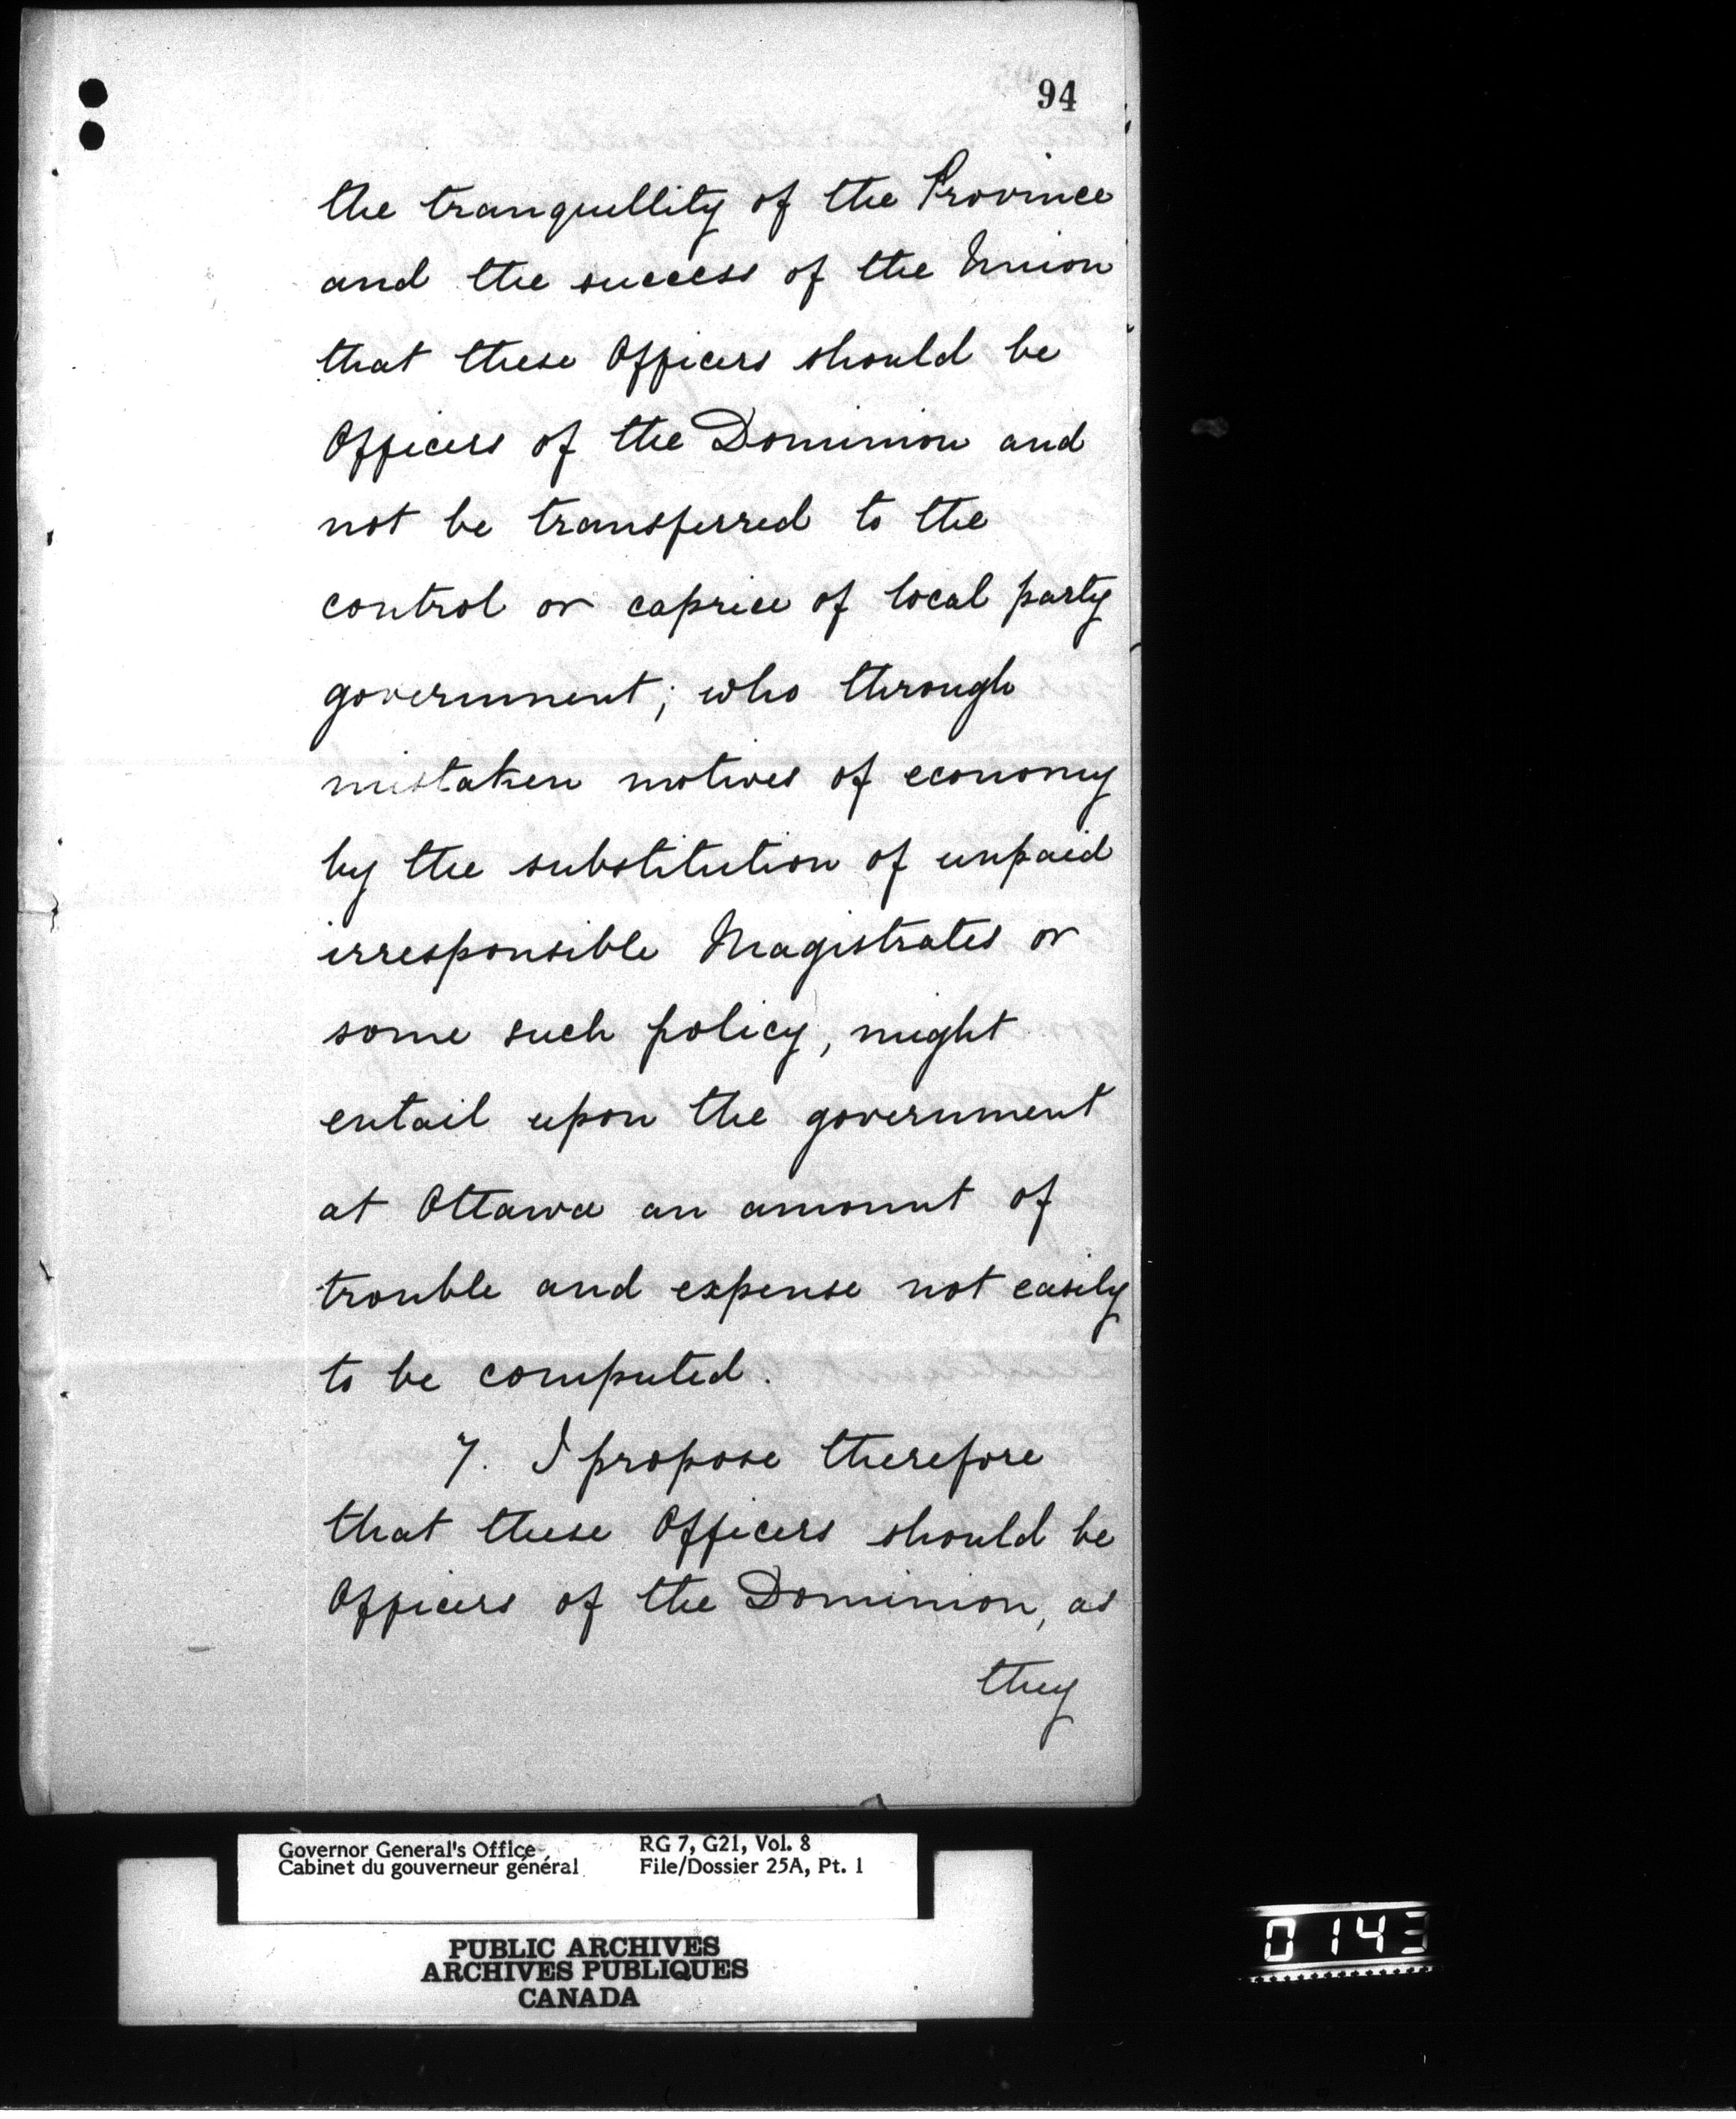 94
the tranquillity of the Province
and the success of the Union
that these Officers should be
Officers of the Dominion and
not be transferred to the
control or caprice of local party
government; who through
mistaken motives of economy
by the substitution of unpaid
irresponsible Magistrates or
some such policy, might
entail upon the government
at Ottawa an amount of
trouble and expense not easily
to be computed.
7. I propose therefore
that these Officers should be
Officers of the Dominion, as
they
Governor General's Office
Cabinet du gouverneur général
RG 7, G21, Vol. 8
File/Dossier 25A, Pt. 1
PUBLIC ARCHIVES
ARCHIVES PUBLIQUES
CANADA
0143